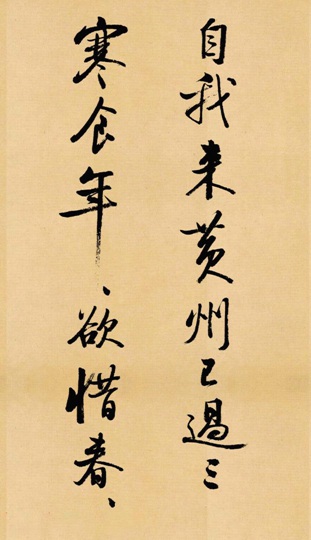 自我来黄州已過三
寒食年、欲惜春、